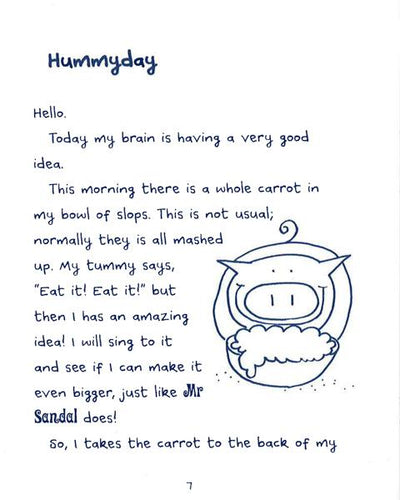 Hummyday
Hello.
Today my brain is having a very good
idea.
This morning there is a whole carrot in
my bowl of slops. This is not usual;
normally they is all mashed
up. My tummy says,
"Eat it! Eat it!" but
then I has an amazing
idea! I will sing to it
and see if I can make it
even bigger, just like Mr
Sandal does!
So, I takes the carrot to the back of my
7